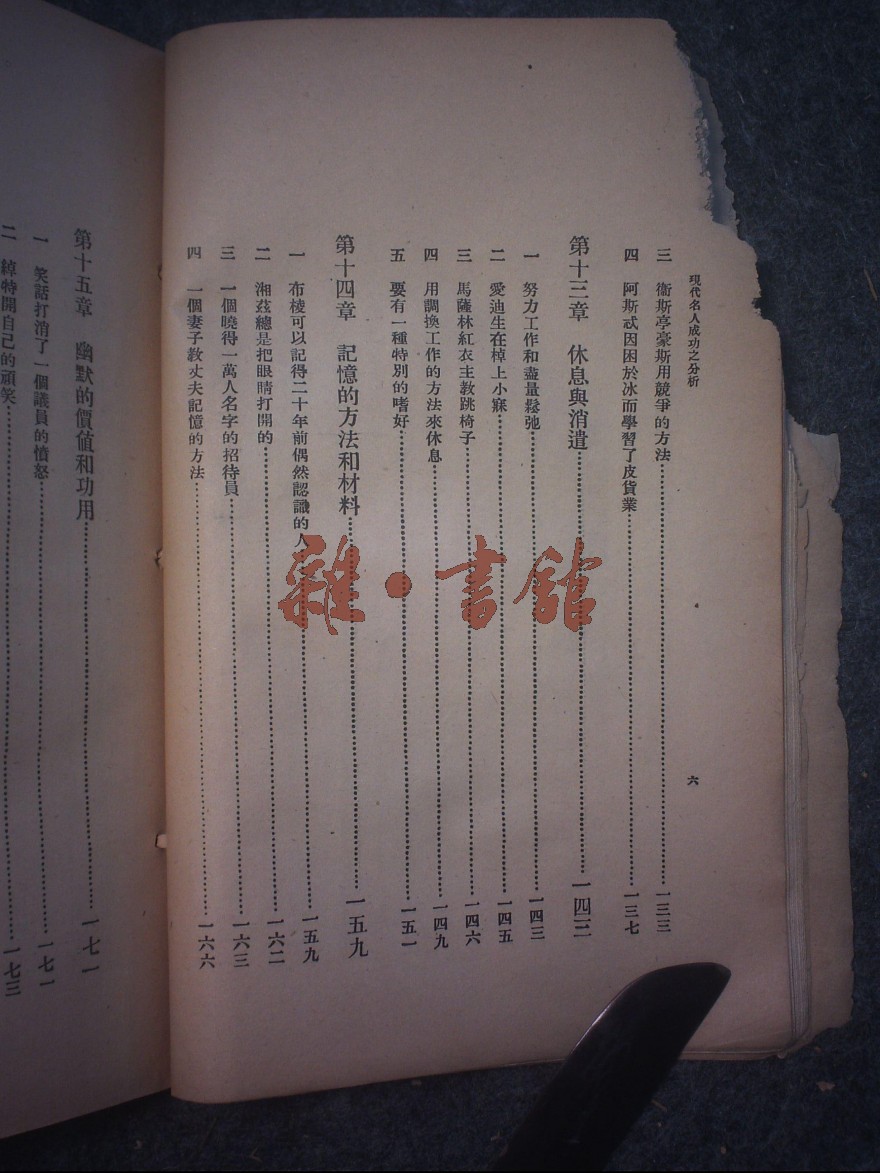 現代名人成功之分析
六
三 衞斯亭豪斯用競爭的方法 一三三
四 阿斯忒因困於冰而學習了皮貨業 一三七
第十三章 休息與消遣 一四三
一 努力工作和盡量鬆弛 一四三
二 愛迪生在棹上小寐 一四五
三 馬薩林紅衣主教跳椅子 一四六
四 用調換工作的方法來休息 一四九
五 要有一種特別的嗜好 一五一
第十四章 記憶的方法和材料 一五九
一 布棱可以記得二十年前偶然認識的人 一五九
二 湘茲總是把眼睛打開的 一六二
三 一個曉得一萬人名字的招待員 一六三
四 一個妻子教丈夫記憶的方法 一六六
第十五章 幽默的價值和功用 一七一
一 笑話打消了一個議員的憤怒 一七一
二 綽特開自己的頑笑 一七三
雜·書館